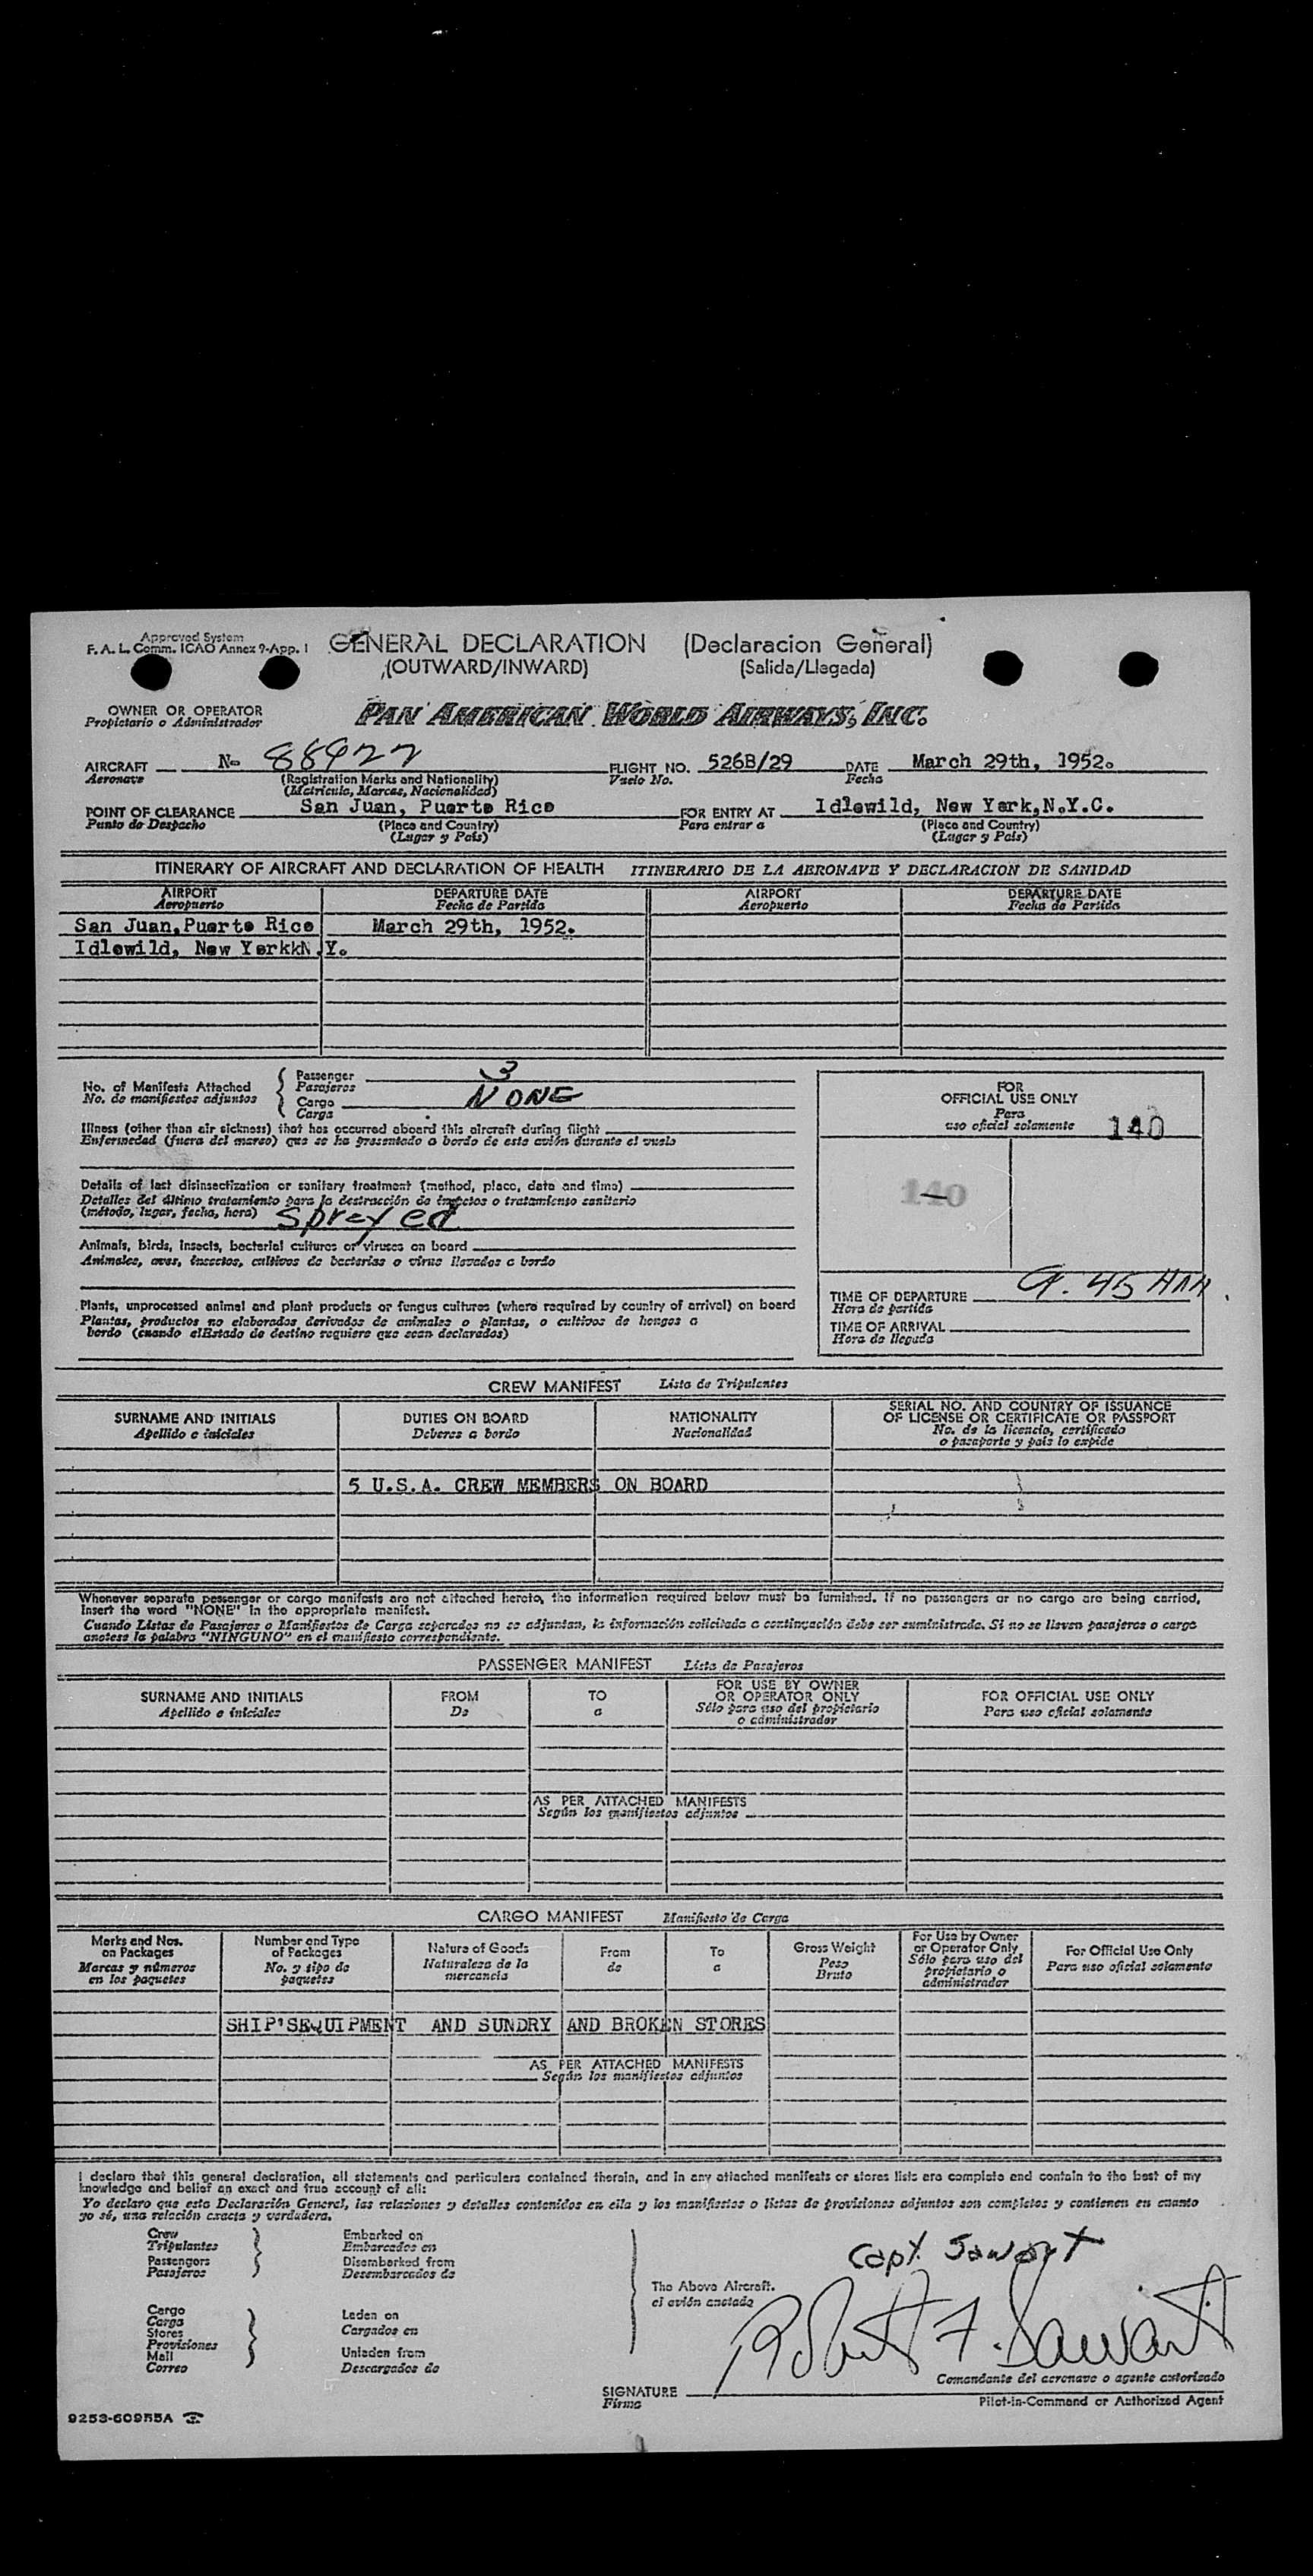 Approved System
F. A. L. Comm. ICAO Annex 9-App. 1
GENERAL DECLARATION (Declaracion General)
(OUTWARD/INWARD) (Salida/Llegada)
OWNER OR OPERATOR
Propietario o Administrador
PAN AMERICAN WORLD AIRWAYS, INC.
AIRCRAFT N- 88922 FLIGHT NO. 526B/29 DATE March 29th, 1952.
Aeronave (Registration Marks and Nationality) Vuelo No. Fecha
(Matricula, Marcas, Nacionalidad)
POINT OF CLEARANCE San Juan, Puerto Rico FOR ENTRY AT Idlewild, New York,N.Y.C.
Punto de Despacho (Place and Country) Para entrar a (Place and Country)
(Lugar y País) (Lugar y País)
ITINERARY OF AIRCRAFT AND DECLARATION OF HEALTH ITINERARIO DE LA AERONAVE Y DECLARACION DE SANIDAD
AIRPORT DEPARTURE DATE AIRPORT DEPARTURE DATE
Aeropuerto Fecha de Partida Aeropuerto Fecha de Partida
San Juan,Puerto Rico March 29th, 1952.
Idlewild, New YorkkN.Y.
No. of Manifests Attached
No. de manifiestos adjuntos
Passenger 3
Pasajeros
Cargo NONE
Carga
Illness (other than air sickness) that has occurred aboard this aircraft during flight
Enfermedad (fuera del mareo) que se ha presentado a bordo de este avión durante el vuelo
Details of last disinsectization or sanitary treatment (method, place, date and time)
Detalles del último tratamiento para la destrucción de insectos o tratamiento sanitario
(método, lugar, fecha, hora) Sprayed
Animals, birds, insects, bacterial cultures or viruses on board
Animales, aves, insectos, cultivos de bacterias o virus llevados a bordo
Plants, unprocessed animal and plant products or fungus cultures (where required by country of arrival) on board
Plantas, productos no elaborados derivados de animales o plantas, o cultivos de hongos a
bordo (cuando elEstado de destino requiere que sean declarados)
FOR
OFFICIAL USE ONLY
Para
uso oficial solamente 140
140
TIME OF DEPARTURE 9.45
Hora de partida
TIME OF ARRIVAL
Hora de llegada
CREW MANIFEST Lista de Tripulantes
SURNAME AND INITIALS DUTIES ON BOARD NATIONALITY SERIAL NO. AND COUNTRY OF ISSUANCE
Apellido e iniciales Deberes a bordo Nacionalidad OF LICENSE OR CERTIFICATE OR PASSPORT
No. de la licencia, certificado
o pasaporte y país lo expide
5 U.S.A. CREW MEMBERS ON BOARD
Whenever separate passenger or cargo manifests are not attached hereto, the information required below must be furnished. If no passengers or no cargo are being carried,
Insert the word "NONE" in the appropriate manifest.
Cuando Listas de Pasajeros o Manifiestos de Carga separados no se adjuntan, la información solicitada a continuación debe ser suministrada. Si no se llevan pasajeros o carga
anotese la palabra "NINGUNO" en el manifiesto correspondiente.
PASSENGER MANIFEST Lista de Pasajeros
SURNAME AND INITIALS FROM TO FOR USE BY OWNER FOR OFFICIAL USE ONLY
Apellido e iniciales De a OR OPERATOR ONLY Para uso oficial solamente
Sólo para uso del propietario
o administrador
AS PER ATTACHED MANIFESTS
Según los manifiestos adjuntos
CARGO MANIFEST Manifiesto de Carga
Marks and Nos. Number and Type Nature of Goods From To Gross Weight For Use by Owner For Official Use Only
on Packages of Packages Naturaleza de la de a Peso or Operator Only Para uso oficial solamente
Marcas y números No. y tipo de mercancia Bruto Sólo para uso del
en los paquetes paquetes propietario o
administrador
SHIP'SEQUIPMENT AND SUNDRY AND BROKEN STORES
AS PER ATTACHED MANIFESTS
Según los manifiestos adjuntos
I declare that this general declaration, all statements and particulars contained therein, and in any attached manifests or stores lists are complete and contain to the best of my
knowledge and belief an exact and true account of all:
Yo declaro que esta Declaración General, las relaciones y detalles contenidos en ella y los manifiestos o listas de provisiones adjuntos son completos y contienen en cuanto
yo sé, una relación exacta y verdadera.
Crew Embarked on
Tripulantes Embarcados en
Passengers Disembarked from
Pasajeros Desembarcados de
Cargo Laden on
Carga Cargados en
Stores
Provisiones Unladen from
Mail Descargados de
Correo
The Above Aircraft.
el avión anotado
Capt. Sawart
Robert F. Sawart
Comandante del aeronave o agente autorizado
SIGNATURE Pilot-in-Command or Authorized Agent
Firma
9253-60955A